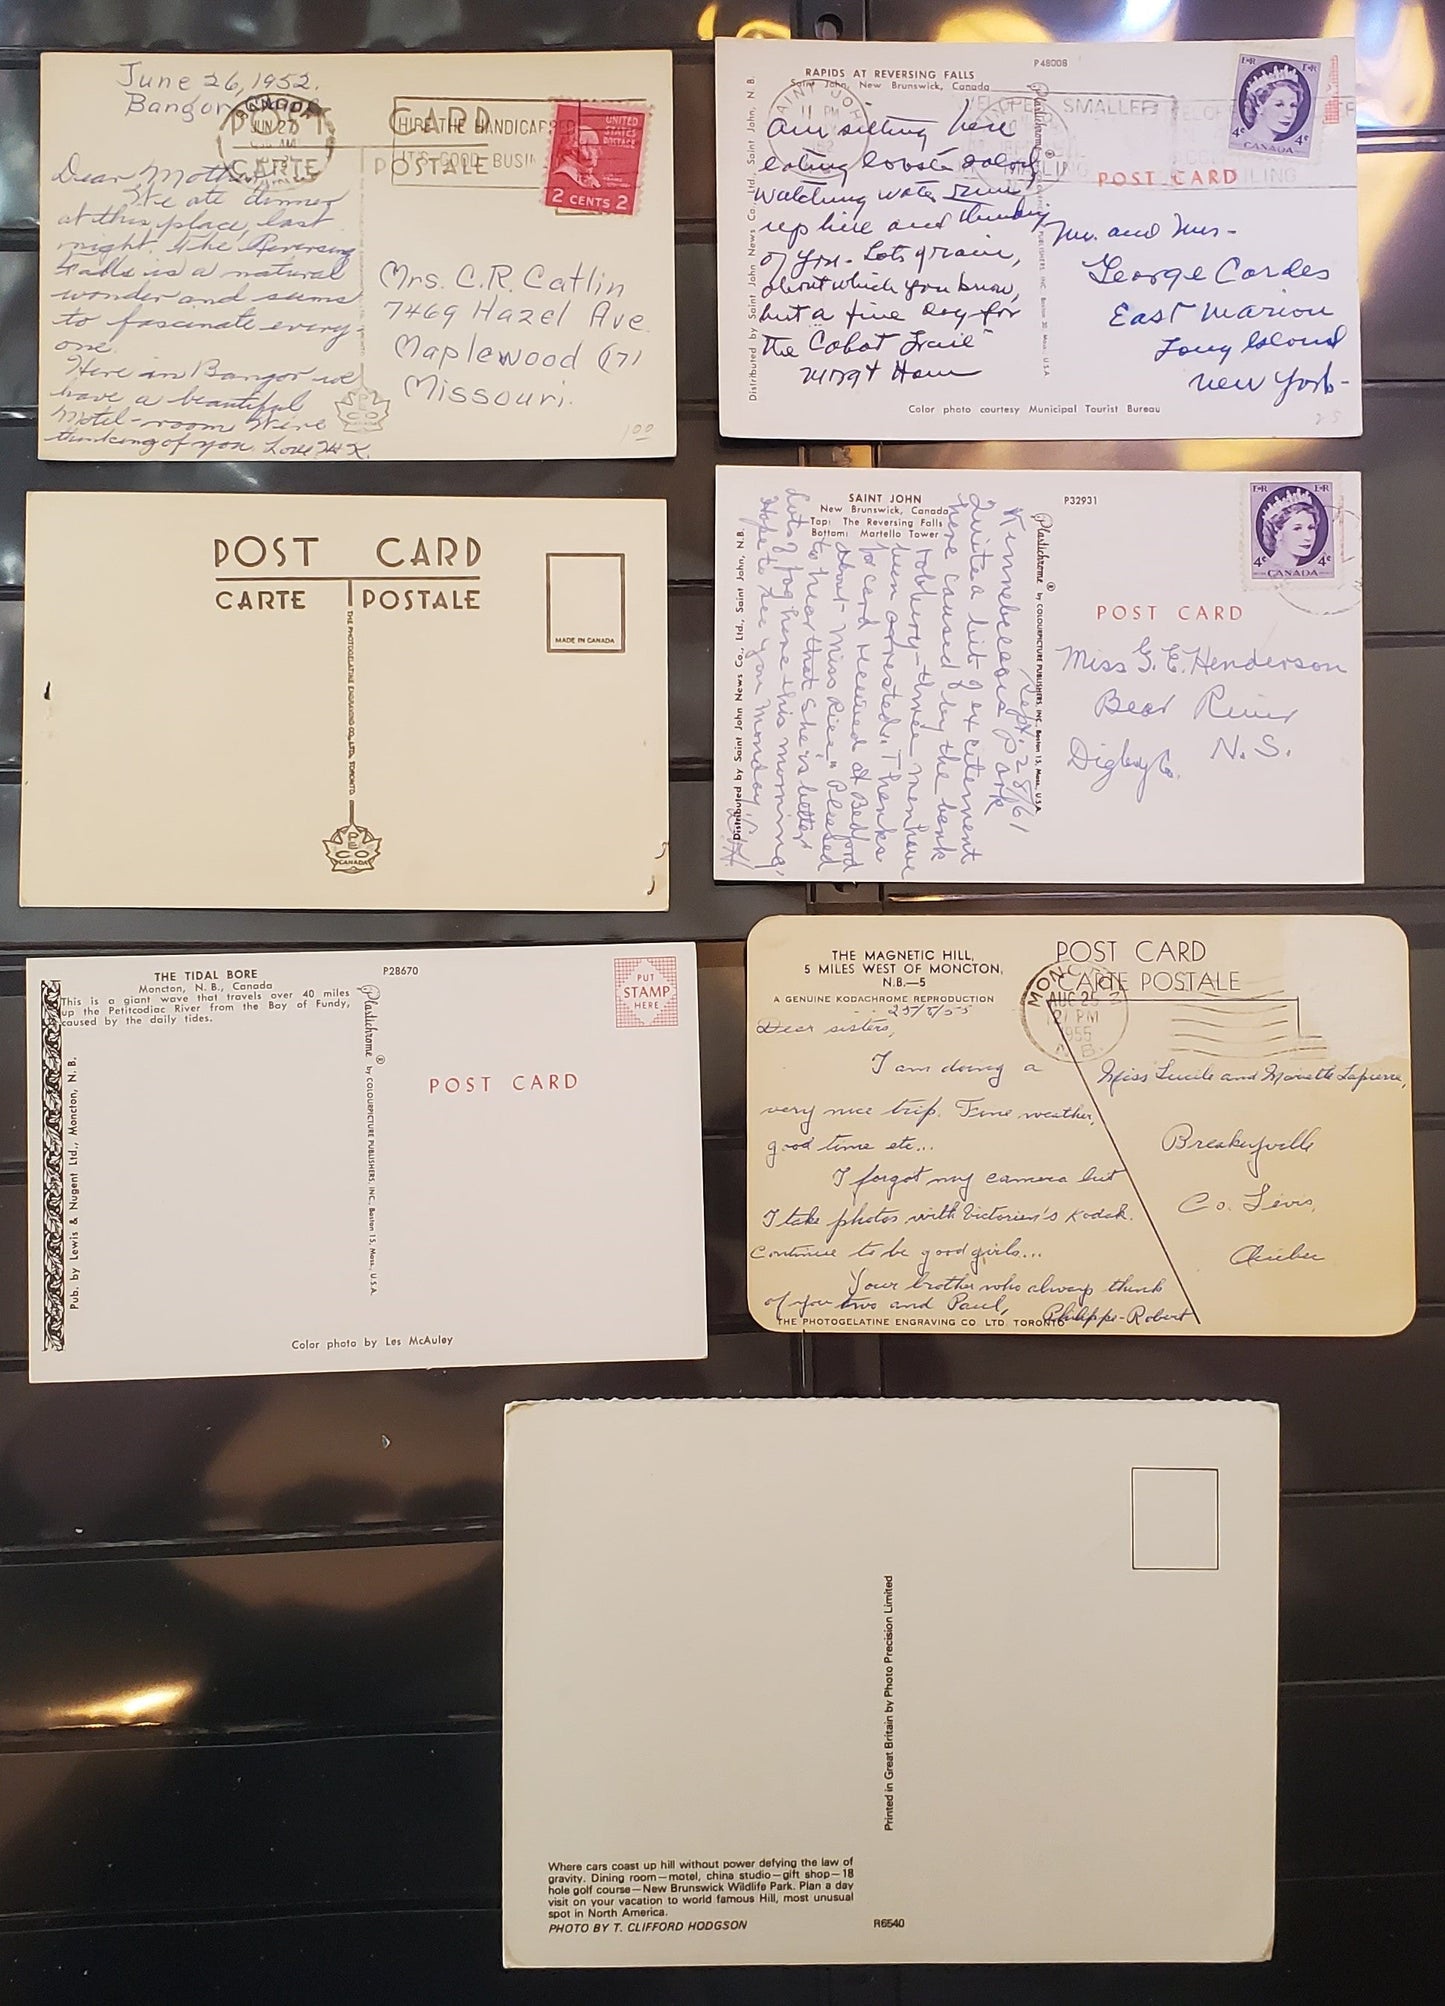 June 26, 1952.
Bangor
BANGOR
JUN 27
POST CARD
CARTE POSTALE
HIRE THE HANDICAPPED
IT'S GOOD BUSIN
UNITED
STATES
POSTAGE
2 CENTS 2
Dear Mother,
We ate dinner
at this place, last
night. The Reversing
Falls is a natural
wonder and seems
to fascinate every
one.
Here in Bangor we
have a beautiful
Motel-room. We're
thinking of you. Love
Mrs. C.R. Catlin
7469 Hazel Ave.
Maplewood (17)
Missouri.
1 00
PECO
CANADA
RAPIDS AT REVERSING FALLS
Saint John, New Brunswick, Canada
P48008
SAINT JOHN
11 PM
Am sitting here
eating lobster salad,
watching water run
up hill and thinking
of you. Lots of rain,
about which you know,
but a fine day for
the "Cabot Trail"
Distributed by Saint John News Co., Ltd., Saint John, N. B.
Plastichrome ® by COLOURPICTURE PUBLISHERS, INC. Boston 30, Mass., U.S.A.
E II R E II R
4¢ 4¢
CANADA
POST CARD
Mr. and Mrs-
George Cordes
East Marion
Long Island
New York-
Color photo courtesy Municipal Tourist Bureau
25
POST CARD
CARTE POSTALE
MADE IN CANADA
THE PHOTOGELATINE ENGRAVING CO., LTD. TORONTO.
PECO
CANADA
SAINT JOHN
New Brunswick, Canada
Top: The Reversing Falls
Bottom: Martello Tower
P32931
Distributed by Saint John News Co., Ltd., Saint John, N.B.
Plastichrome ® by COLOURPICTURE PUBLISHERS, INC. Boston 15, Mass., U.S.A.
Sept. 28/61
Kennebecasis Park
Quite a bit of excitement
here caused by the bank
robbery - three men have
been arrested. Thanks
for card received at Bedford
about "Miss Rice". Pleased
to hear that she is better
Lots of fog here this morning,
Hope to see you Monday,
E II R E II R
4¢ 4¢
CANADA
POST CARD
Miss G. E. Henderson
Bear River
Digby Co. N.S.
THE TIDAL BORE
Moncton, N. B., Canada
This is a giant wave that travels over 40 miles
up the Petitcodiac River from the Bay of Fundy,
caused by the daily tides.
P28670
Pub. by Lewis & Nugent Ltd., Moncton, N. B.
Plastichrome ® by COLOURPICTURE PUBLISHERS, INC., Boston 15, Mass., U.S.A.
PUT
STAMP
HERE
POST CARD
Color photo by Les McAuley
THE MAGNETIC HILL,
5 MILES WEST OF MONCTON,
N.B.—5
A GENUINE KODACHROME REPRODUCTION
POST CARD
CARTE POSTALE
MONCTON
AUC 25
21 PM
1955
N.B.
25/8/55
Dear sisters,
I am doing a
very nice trip. Fine weather,
good time etc...
I forgot my camera but
I take photos with Victorien's Kodak.
Continue to be good girls...
Your brother who always think
of you two and Paul, Philippe-Robert
Miss Lucile and Mariette Lapierre,
Breakeyville
Co. Lévis,
Quebec
THE PHOTOGELATINE ENGRAVING CO. LTD. TORONTO
Printed in Great Britain by Photo Precision Limited
Where cars coast up hill without power defying the law of
gravity. Dining room—motel, china studio—gift shop—18
hole golf course—New Brunswick Wildlife Park. Plan a day
visit on your vacation to world famous Hill, most unusual
spot in North America.
PHOTO BY T. CLIFFORD HODGSON
R6540